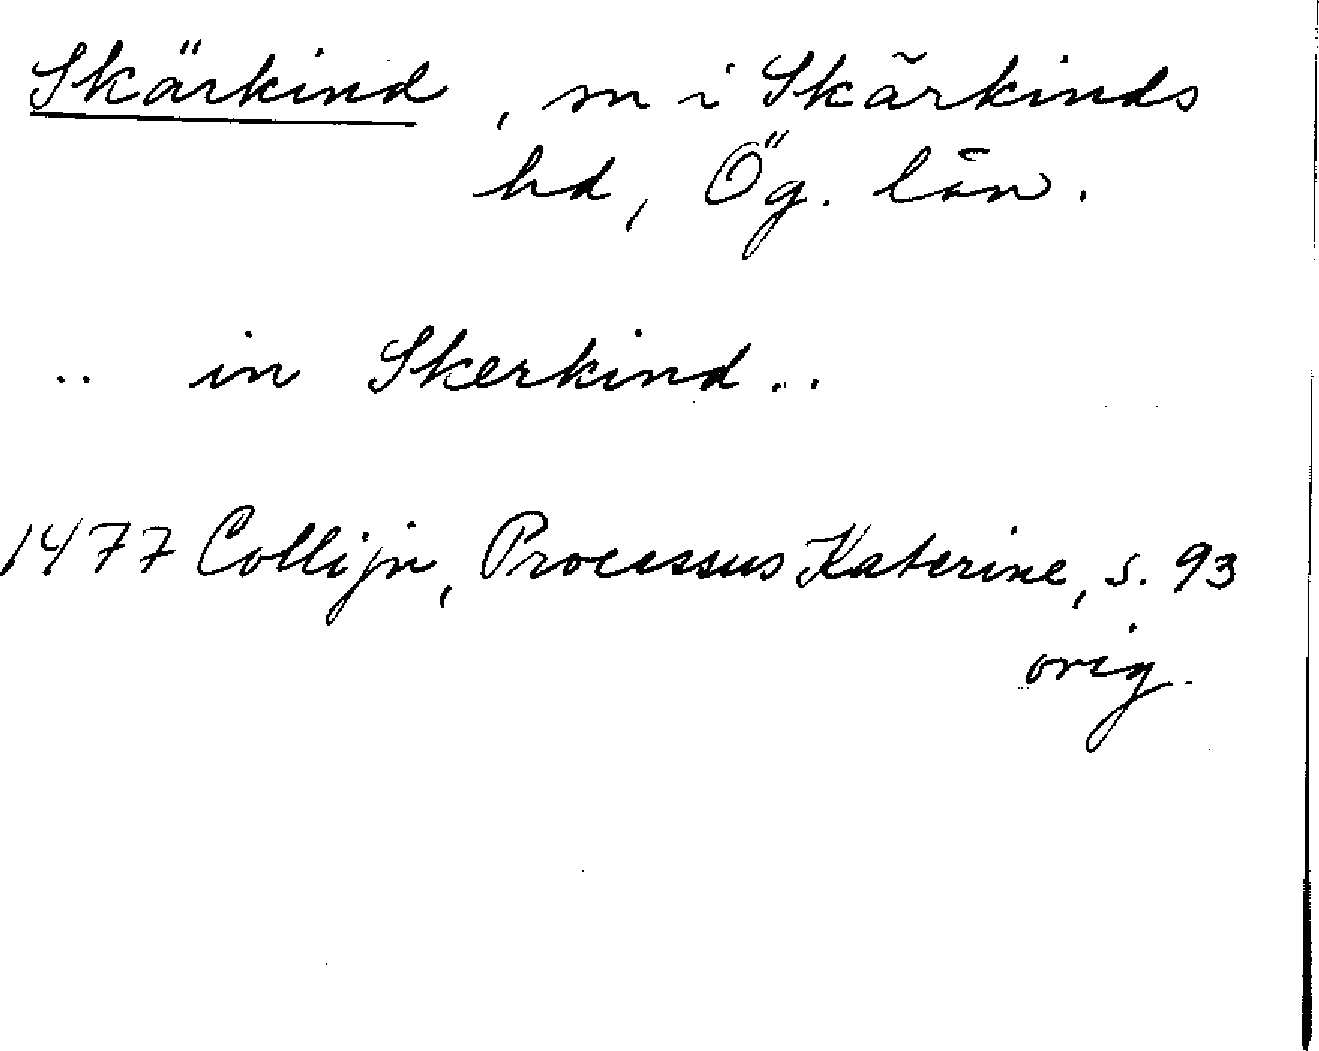 Skärkind, sn i Skärkinds
hd, Ög. län.
.. in Skerkind ..
1477 Collijn, Processus Katerine, s. 93
orig.